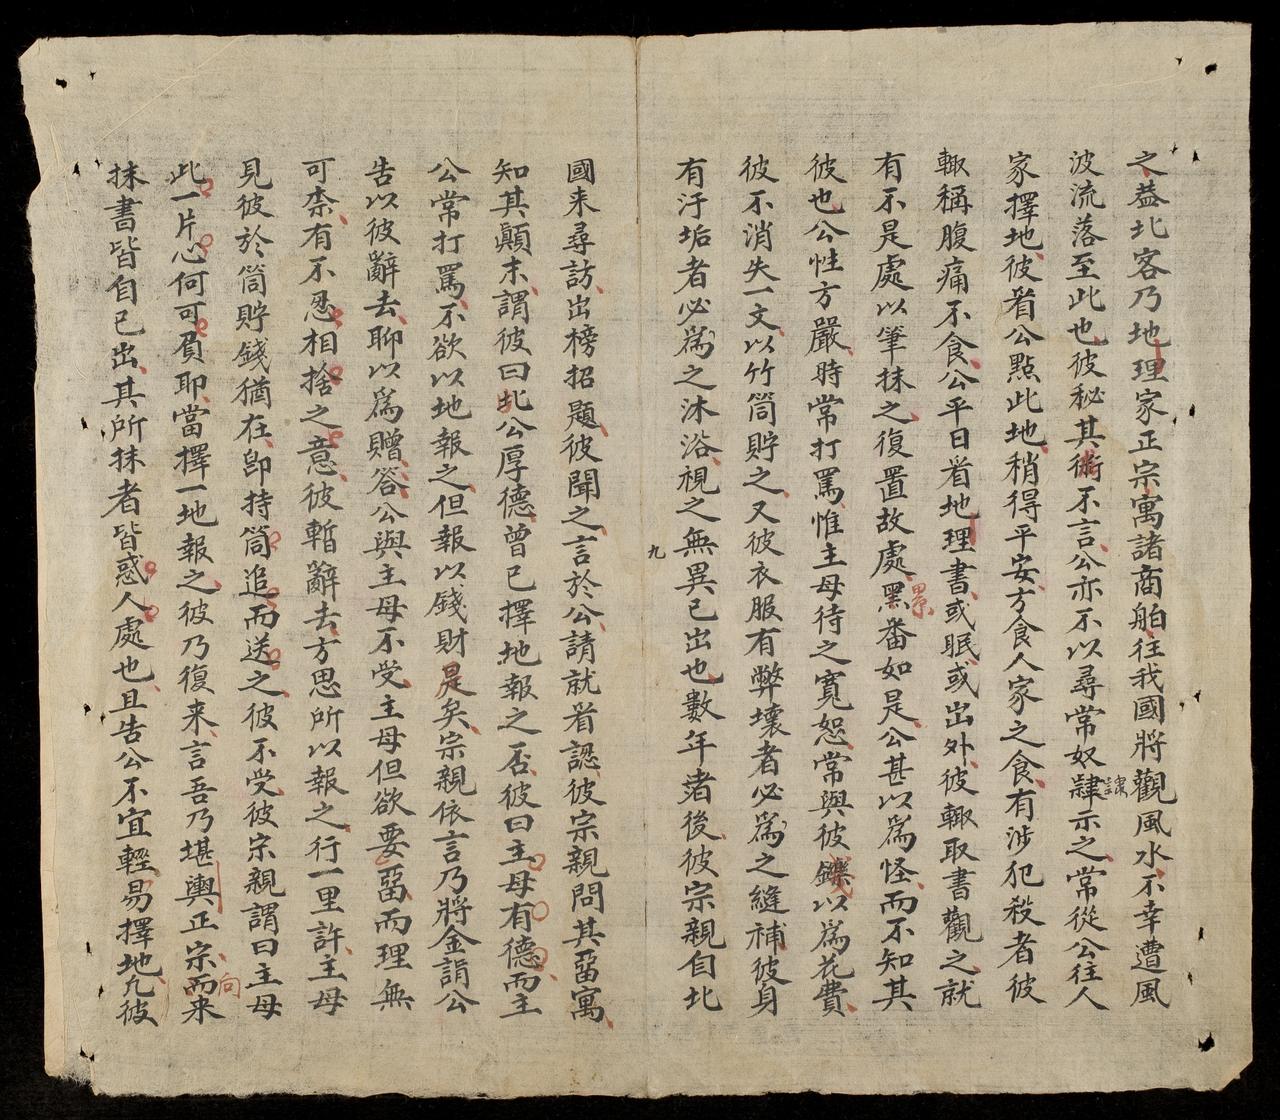 之益北客乃地理家正宗寓諸商舶往我國將觀風水不幸遭風
波流落至此也彼秘其術不言公亦不以尋常奴隸示之常從公往人
家擇地彼看公點此地稍得平安方食人家之食有涉犯殺者彼
輙稱腹痛不食公平日看地理書或眠或出外彼輙取書觀之就
有不是處以筆抹之復置故處累番如是公甚以為怪而不知其
彼也公性方嚴時常打罵惟主母待之寬恕常與彼錢以為花費
彼不消失一文以竹筒貯之又彼衣服有弊壞者必為之縫補彼身
有汙垢者必為之沐浴視之無異已出也數年渚後彼宗親自北
九
國来尋訪出榜招題彼聞之言於公請就看認彼宗親問其畱寓
知其顛末謂彼曰此公厚德曾已擇地報之否彼曰主母有德而主
公常打罵不欲以地報之但報以錢財是矣宗親依言乃將金詣公
告以彼辭去聊以為贈答公與主母不受主母但欲要畱而理無
可柰有不忍相捨之意彼暫辭去方思所以報之行一里許主母
見彼於筒貯錢猶在卽持筒追而送之彼不受彼宗親謂曰主母
此一片心何可負耶當擇一地報之彼乃復来言吾乃堪輿正宗向来
抹書皆自已出其所抹者皆惑人處也且告公不宜輕易擇地凢彼